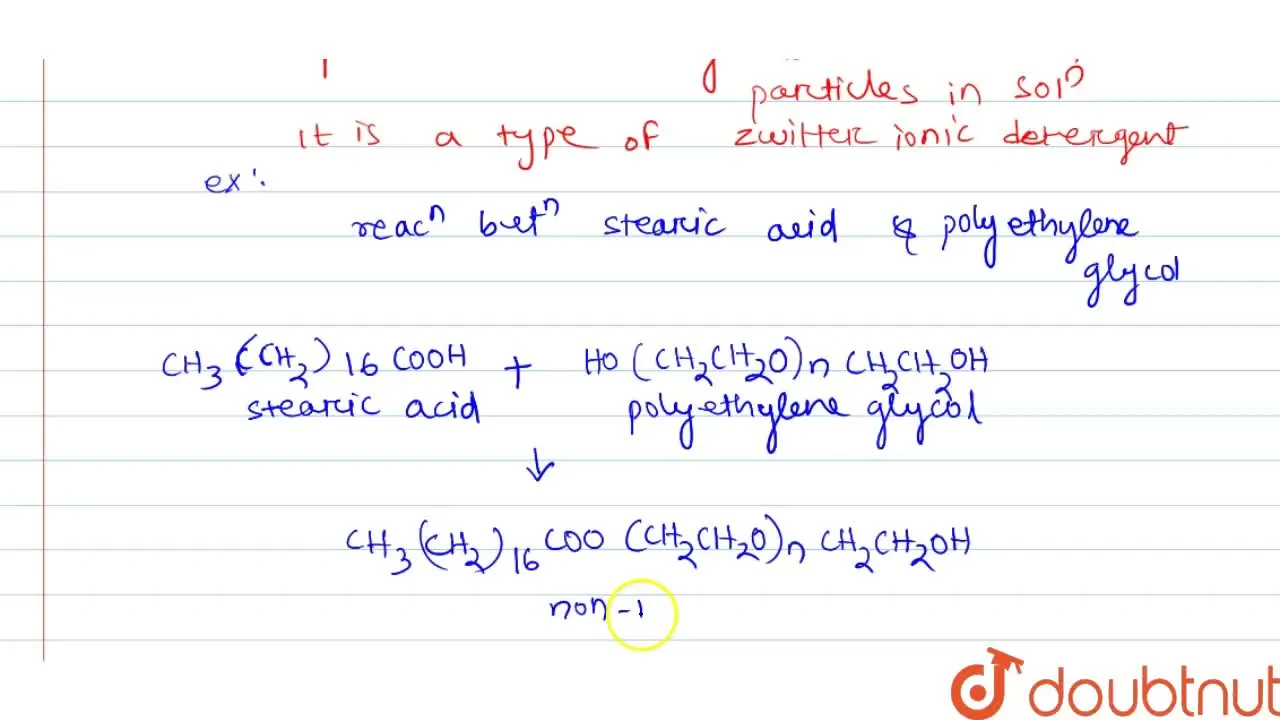 particles in solⁿ
It is a type of zwitter ionic detergent
ex:
reacⁿ betⁿ stearic acid & polyethylene
glycol
CH3(CH2)16COOH + HO(CH2CH2O)n CH2CH2OH
stearic acid polyethylene glycol
↓
CH3(CH2)16COO(CH2CH2O)n CH2CH2OH
non-i
doubtnut